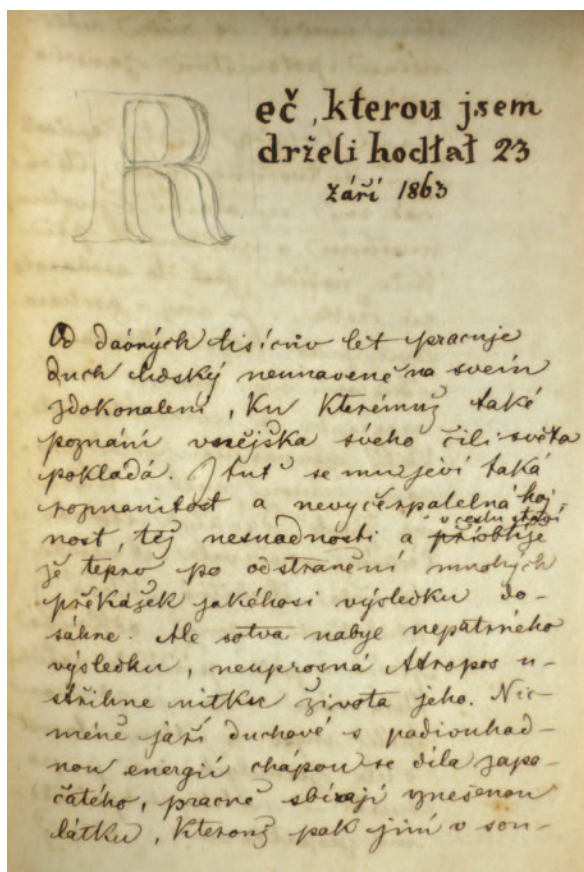 Reč, kterou jsem
držeti hodlał 23
září 1863
Od dávných tisícův let pracuje
duch lidský neunaveně na svém
zdokonalení, ku kterémuž také
poznání vnějška svého čili světa
pokládá. I tuť se mu jeví taká
rozmanitost a nevyčerpatelná hoj-
nost, tej nesnadnosti a v cestu staví
že teprv po odstranění mnohých
překážek jakéhosi výsledku do-
sáhne. Ale sotva nabyl nepatrného
výsledku, neuprosná Atropos u-
střihne nitku života jeho. Nic-
méně jaří duchové s podivuhod-
nou energií chápou se díla zapo-
čatého, pracně sbírají vznešenou
látku, kterouž pak jiní v sou-